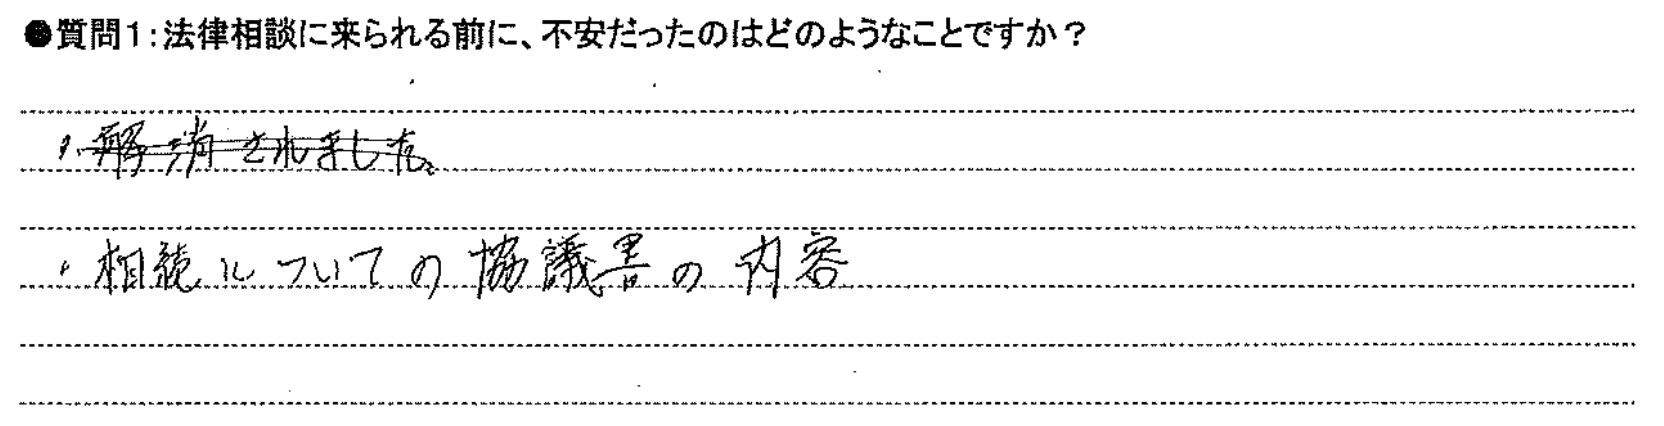 ●質問1:法律相談に来られる前に、不安だったのはどのようなことですか?
・解消されました。
・相続についての協議書の内容